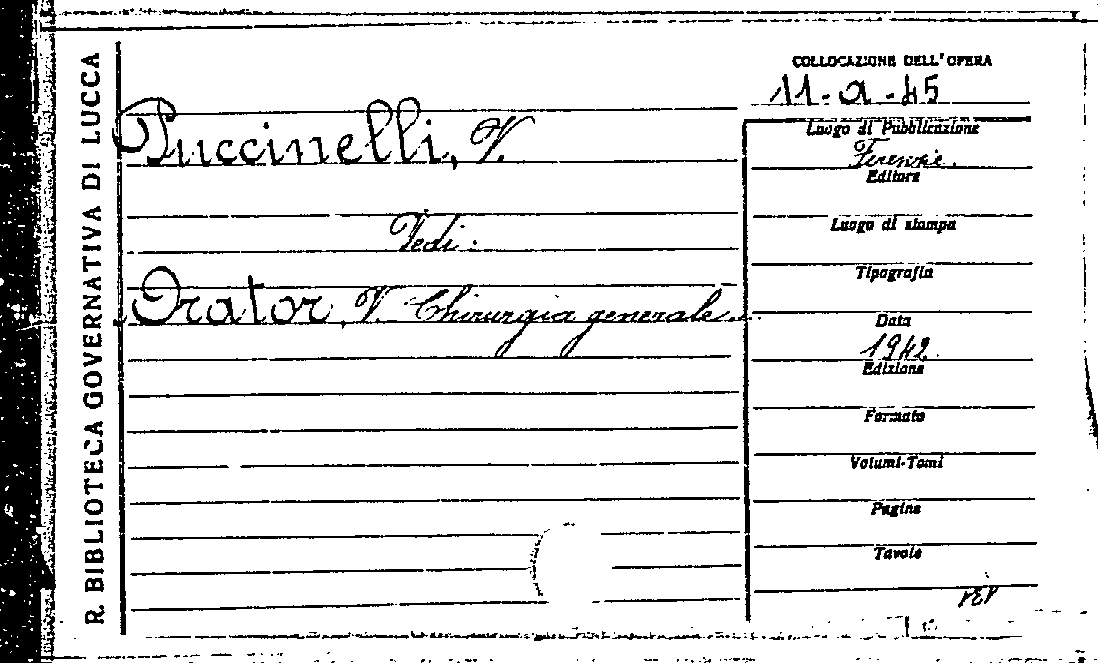 R. BIBLIOTECA GOVERNATIVA DI LUCCA
Puccinelli, V.
Vedi:
Orator, V. Chirurgia generale.
COLLOCAZIONE DELL'OPERA
11-a-45
Luogo di Pubblicazione
Firenze.
Editore
Luogo di stampa
Tipografia
Data
1942
Edizione
Formato
Volumi-Tomi
Pagine
Tavole